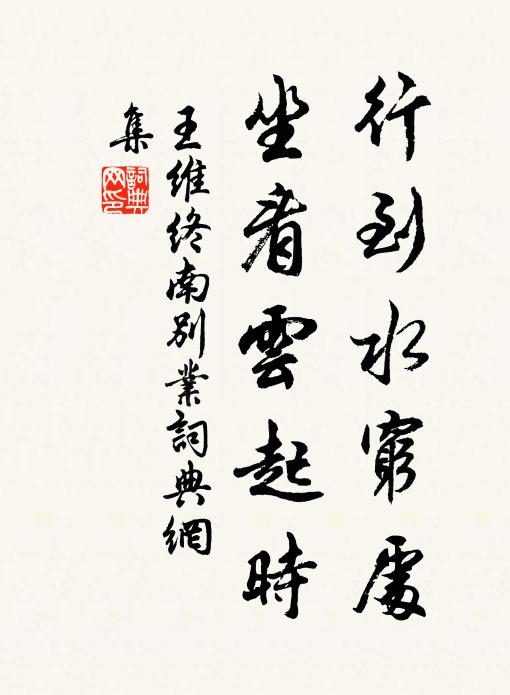 行到水窮處
坐看雲起時
王維終南別業詞典網
集
詞典
網印